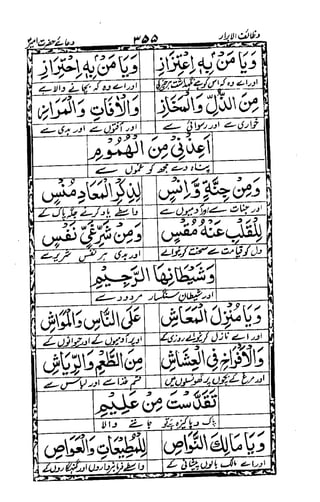 وظائف الابرار ۳۵۵ دعائے حضرت امیرؑ
وَيَا مَنْ بِهٖ اعْتِزَازِیْ وَيَا مَنْ بِهٖ احْتِرَازِیْ
اور اے وہ کہ بچانے والا ہے
مِنَ الذُّلِّ وَالْمَخَازِ وَالْاٰفَاتِ وَالْمَرَازِ
خواری سے اور رسوائی سے اور آفتوں سے اور بدی سے
اَعِذْنِیْ مِنَ الْهُمُوْمِ
پناہ دے مجھ کو غموں سے
وَمِنْ جِنَّةٍ وَّاِنْسٍ لِذِكْرِ الْمَعَادِ مُنْسٍ
اور جنات سے اور آدمیوں سے واسطے یاد کرنے جگہ پاک کے
لِلْقَلْبِ عَنْهُ مُقْسٍ وَمِنْ شَرِّ غَیِّ نَفْسٍ
دل کو قیامت سے سخت کرنیوالے اور بدی سے نفس شریر سے
وَشَيْطَانِهَا الرَّجِيْمِ
اور شیطان سنگسار مردود سے
وَيَا مُنْزِلَ الْمَعَاشِ عَلَی النَّاسِ وَالْمَوَاشِ
اور اے نازل کرنیوالے روزی کے اوپر آدمیوں کے اور حیوانوں کے
وَالْاَفْرَاخِ فِی الْعِشَاشِ مِنَ الطُّعْمِ وَالرِّيَاشِ
اور مرغ کے بچوں پر گھونسلوں میں قسم غذا سے اور لباس سے
تَقَدَّسْتَ مِنْ عَلِيْمٍ
پاک و پاکیزہ ہے تو جاننے والا
وَيَا مَالِكَ النَّوَاصِ لِلْمُطِيْعَاتِ وَالْعَوَاصِ
اور اے مالک بالوں پیشانی کے واسطے فرمانبرداروں اور گنہگاروں کے